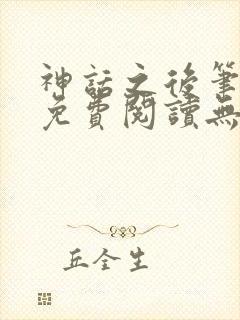 神話之後筆
免費閱讀無
丘全生